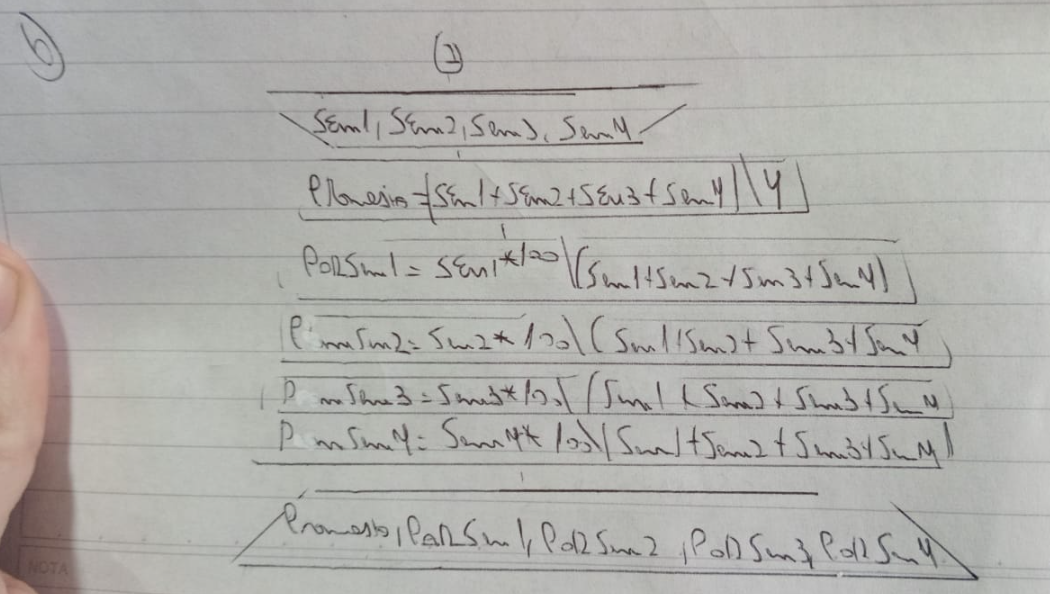 6
①
Sem1, Sem2, Sem3, Sem4
Promesio=(Sem1+Sem2+Sem3+Sem4)\4
PorSem1= Sem1*100\(Sem1+Sem2+Sem3+Sem4)
Sem2= Sem2*100\(Sem1+Sem2+Sem3+Sem4
Sem3=Sem3*100\(Sem1+Sem2+Sem3+Sem4
Sem4= Sem4*100\(Sem1+Sem2+Sem3+Sem4)
Promesio, PorSem1, PorSem2, PorSem3, PorSem4
NOTA